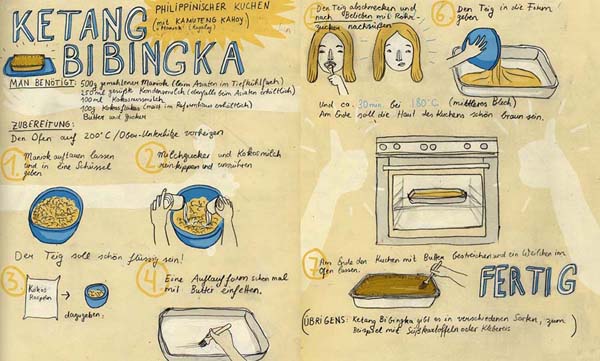 KETANG
BIBINGKA
PHILIPPINISCHER KUCHEN
(mit KAMUTENG KAHOY)
MAN BENÖTIGT: 500g gemahlenen Maniok (beim Asiaten im Tiefkühlfach)
250 ml gesüßte Kondensmilch (ebenfalls beim Asiaten erhältlich)
100 ml Kokosnussmilch
100g Kokosflakes (meist im Reformhaus erhältlich)
Butter und Zucker
ZUBEREITUNG:
Den Ofen auf 200°C / Ober-Unterhitze vorheizen
1. Maniok auftauen lassen
und in eine Schüssel
geben
2. Milchzucker und Kokosmilch
reinkippen und umrühren
Der Teig soll schön flüssig sein!
3. Kokos
Raspeln
dazugeben
4. Eine Auflaufform schon mal
mit Butter einfetten.
5. Den Teig abschmecken und
nach Belieben mit Rohr-
zucker nachsüßen
6. Den Teig in die Form
geben
Und ca. 30 min. bei 180°C (mittleres Blech)
Am Ende soll die Haut des Kuchens schön braun sein.
7. Am Ende den Kuchen mit Butter bestreichen und ein Weilchen im
Ofen lassen.
FERTIG
ÜBRIGENS: Ketang Bibingka gibt es in verschiedenen Sorten, zum
Beispiel mit Süßkartoffeln oder Klebereis